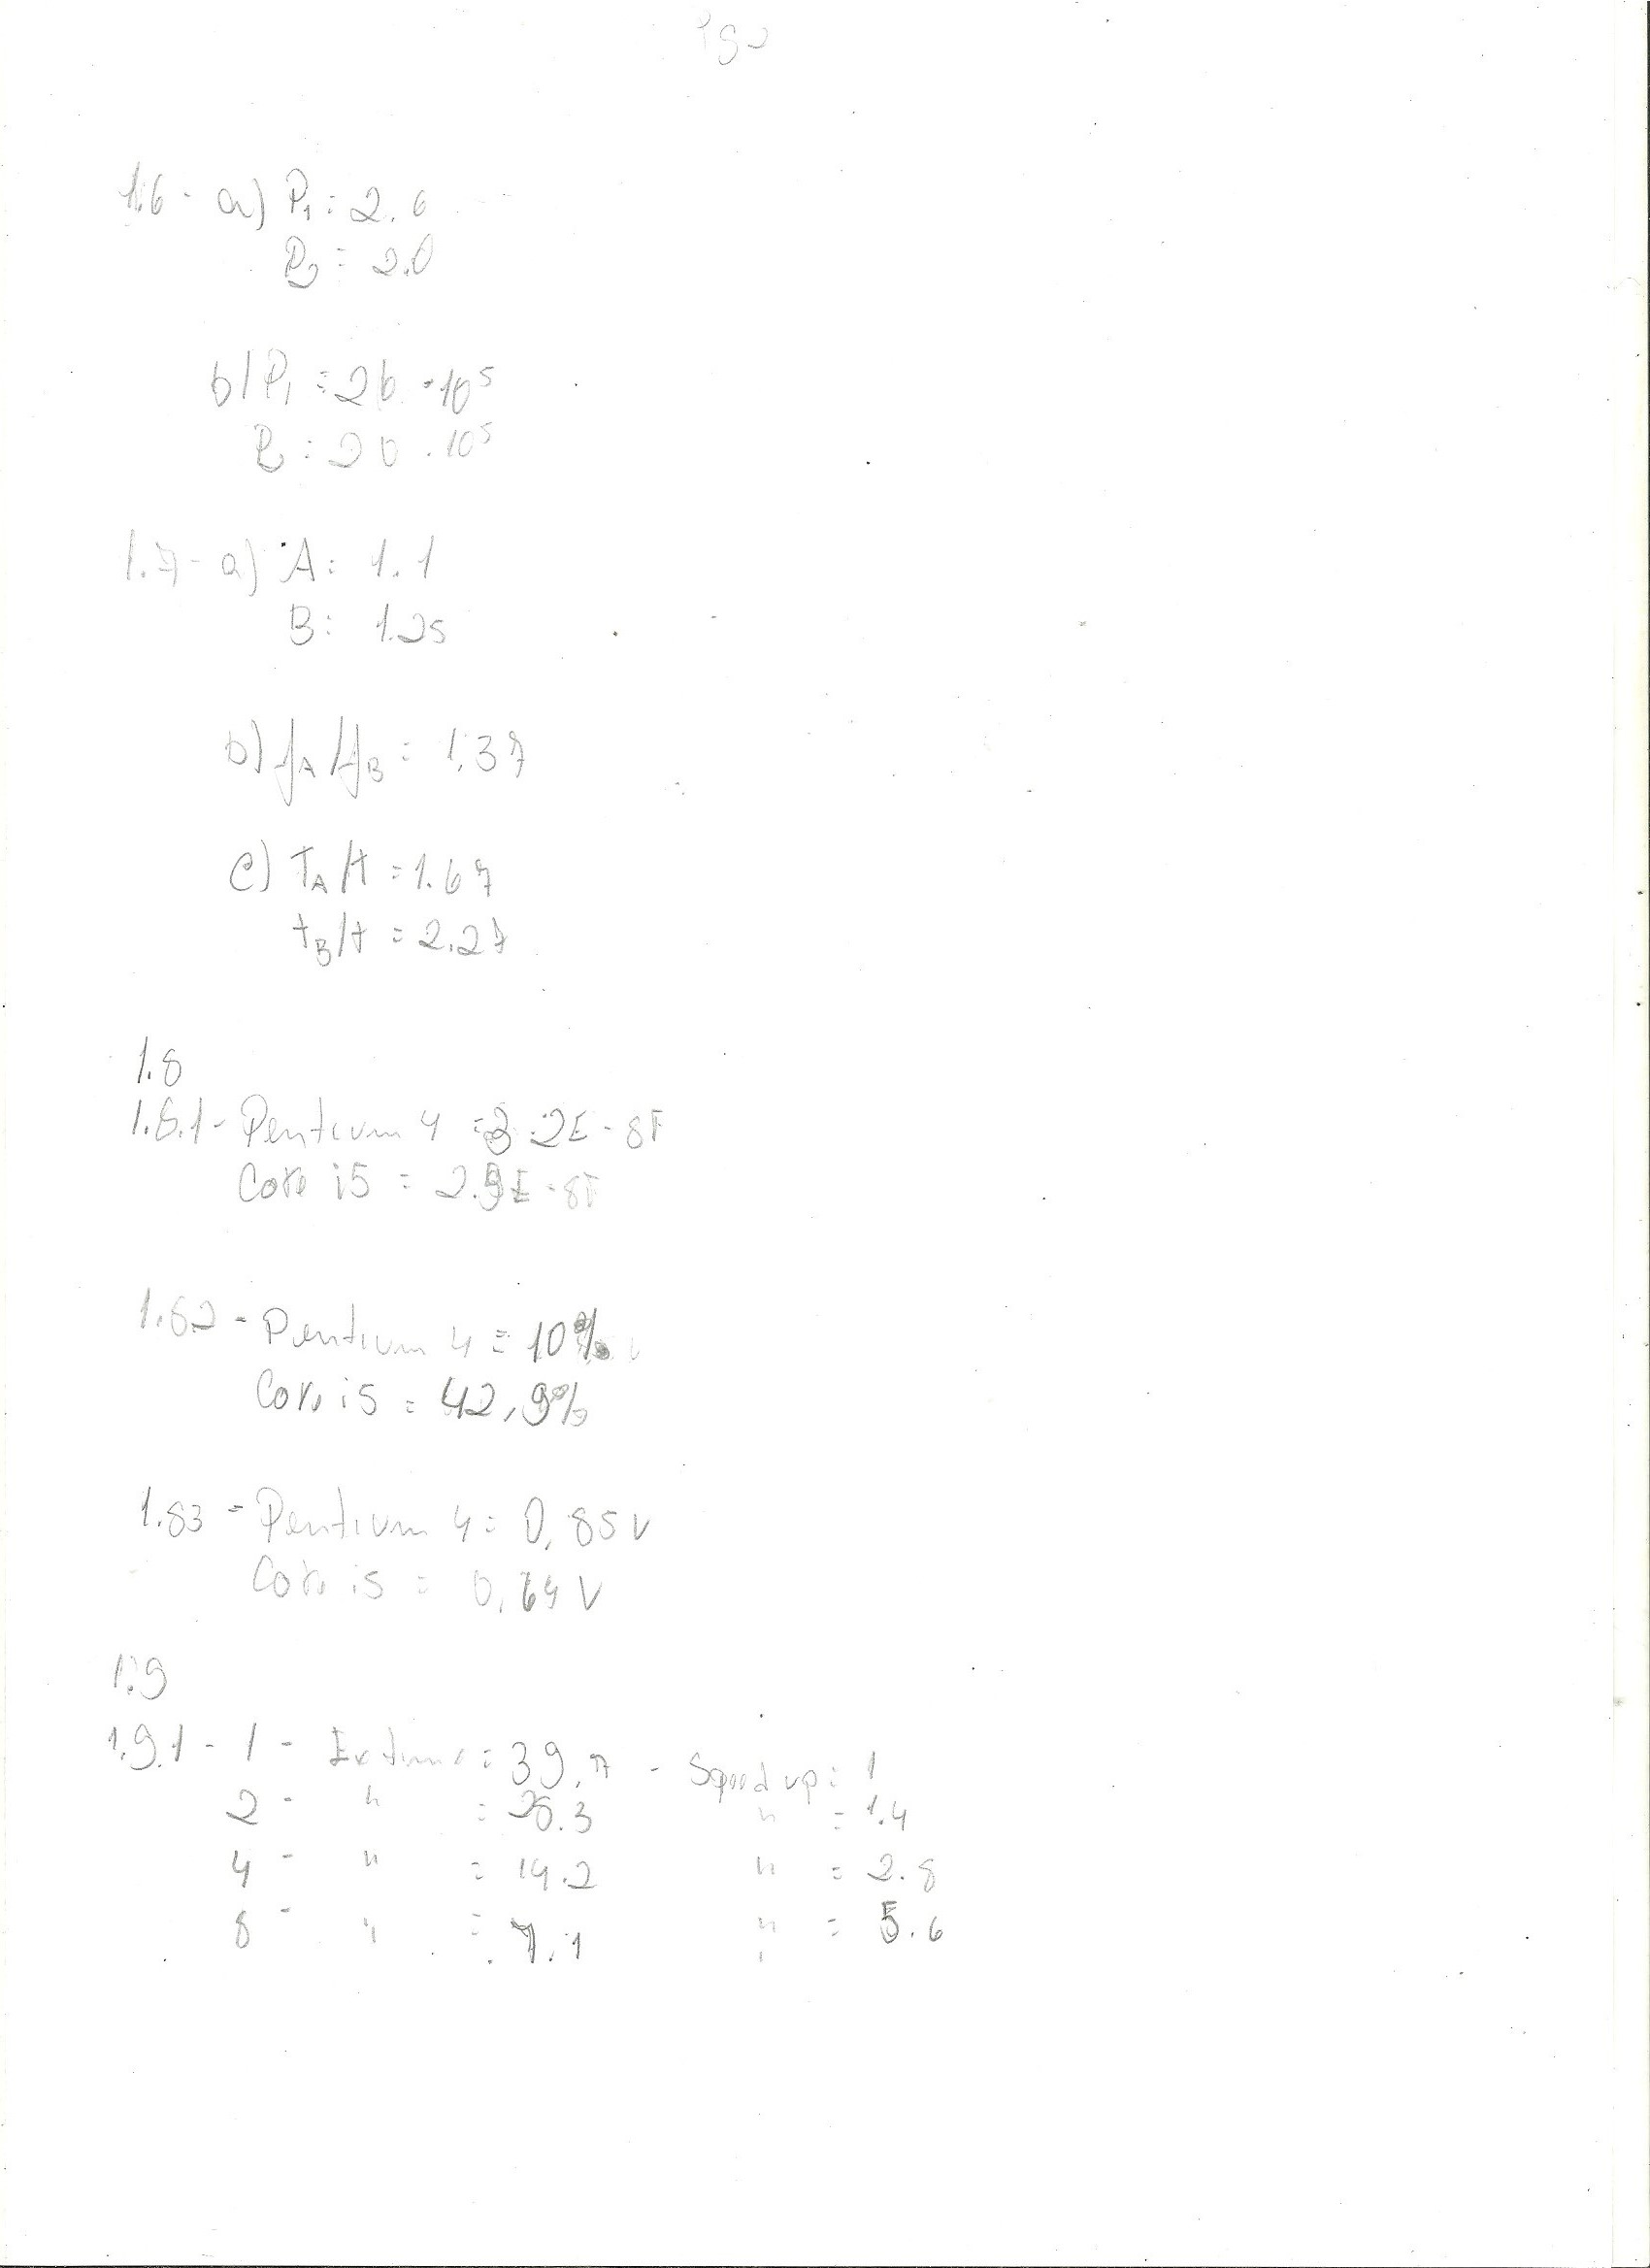 1.6 - a) P1 = 2.6
P2 = 2.0
b) P1 = 26 . 10^5
P2 = 20 . 10^5
1.7 - a) A: 1.1
B: 1.25
b) fA/fB = 1.37
c) TA/t = 1.67
tB/t = 2.27
1.8
1.8.1 - Pentium 4 = 3.2E - 8F
Core i5 = 2.9E - 8F
1.82 - Pentium 4 = 10%
Core i5 = 42,9%
1.83 = Pentium 4 = 0,85V
Core i5 = 0,64V
1.9
1.9.1 - 1 - Ex time = 39.7 - Speed up: 1
2 - " = 28.3 " = 1.4
4 - " = 14.2 " = 2.8
8 - " = 7.1 " = 5.6